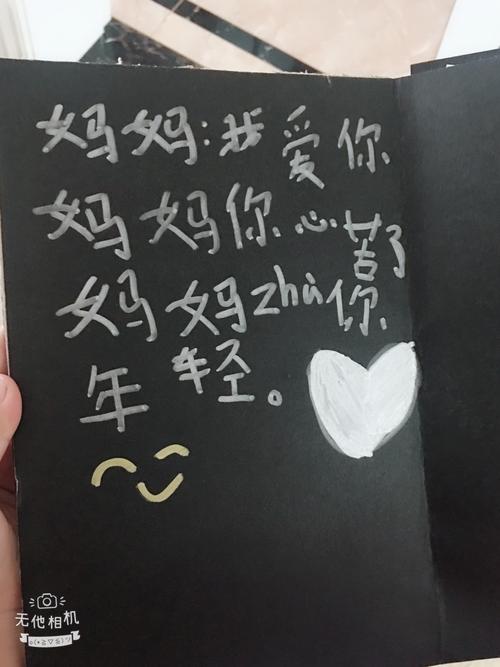 妈妈:我爱你
妈妈你心苦了
妈妈zhù你
年轻。
无他相机